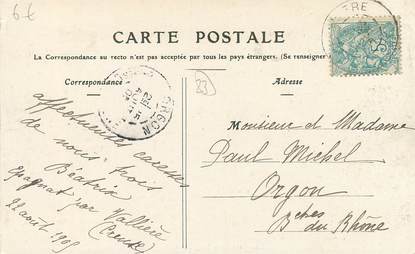 6-€
CARTE POSTALE
La Correspondance au recto n'est pas acceptée par tous les pays étrangers. (Se renseigner
Correspondance
Adresse
ORGON
23
affectueuses caresses
de nous trois
Béatrix
Espagnat par Vallière
(Creuse)
22 août 1905
Monsieur et Madame
Paul Michel
Orgon
Bches du Rhône